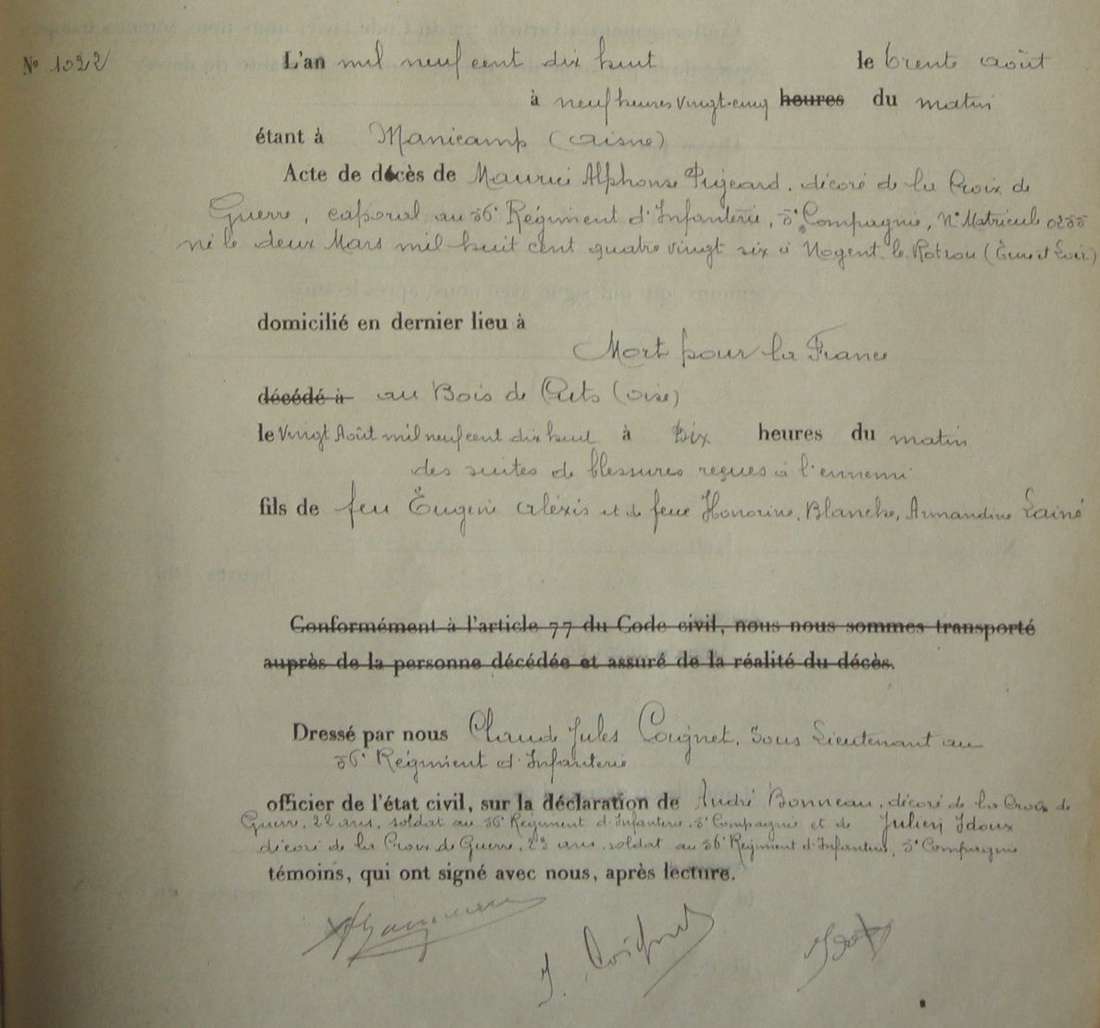 N° 1022 L'an mil neuf cent dix huit le trente août
à neuf heures vingt-cinq heures du matin
étant à Manicamp (Aisne)
Acte de décès de Maurice Alphonse décoré de la Croix de
Guerre, caporal au 36e Régiment d'Infanterie, Compagnie, N° Matricule
né le deux Mars mil huit cent quatre vingt six à Nogent le Rotrou (Eure et Loir)
domicilié en dernier lieu à
Mort pour la France
décédé à au Bois de (Oise)
le vingt Août mil neuf cent dix huit à six heures du matin
des suites de blessures reçues à l'ennemi
fils de feu Eugène Alexis et de feue Honorine, Blanche, Armandine Lainé
Conformément à l'article 77 du Code civil, nous nous sommes transporté
auprès de la personne décédée et assuré de la réalité du décès.
Dressé par nous Claude Jules Coignet, Sous Lieutenant au
36e Régiment d'Infanterie
officier de l'état civil, sur la déclaration de André Bonneau, décoré de la Croix de
Guerre, 22 ans, soldat au 36e Régiment d'Infanterie, Compagnie et de Julien Idoux
décoré de la Croix de Guerre, 23 ans, soldat au 36e Régiment d'Infanterie, Compagnie
témoins, qui ont signé avec nous, après lecture.
J. Coignet